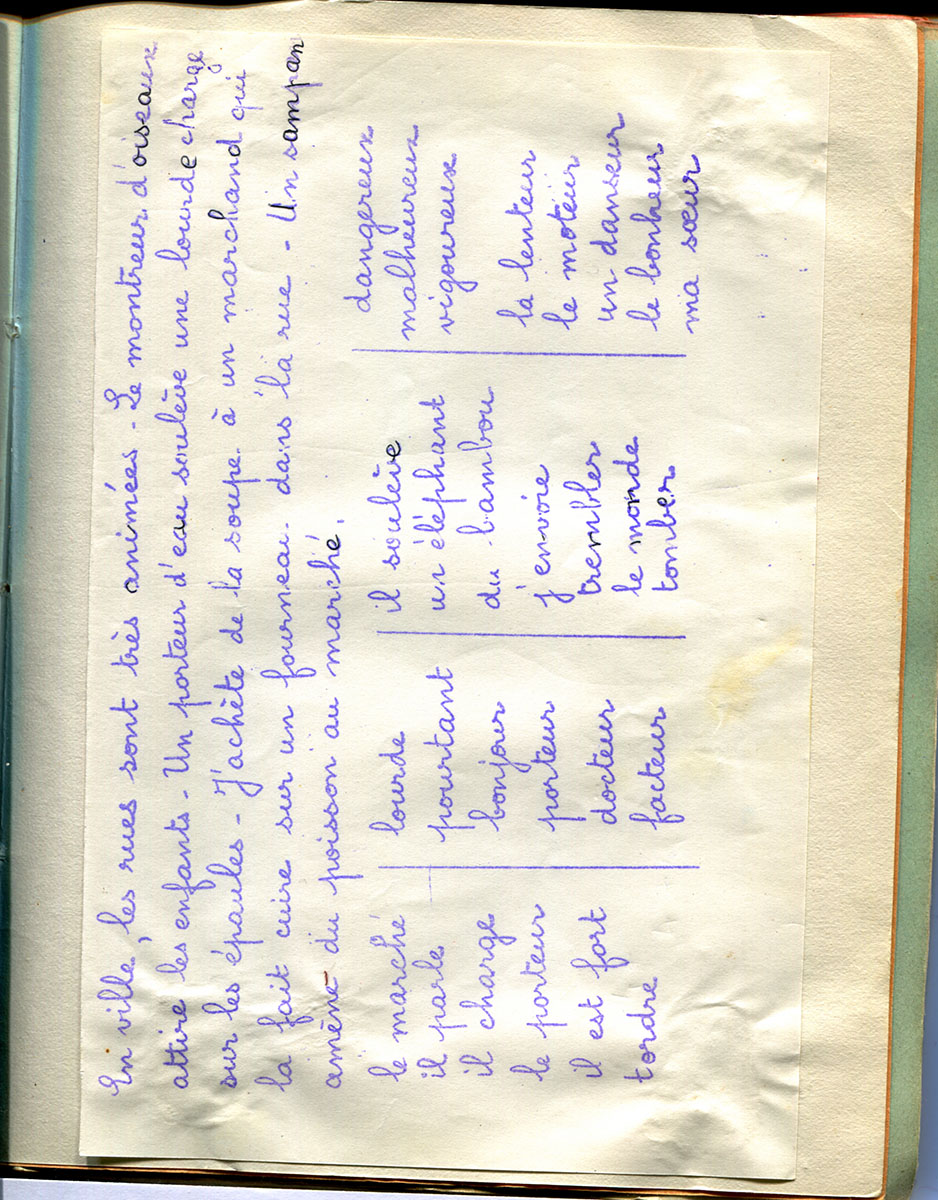 En ville, les rues sont très animées - Le montreur d'oiseaux
attire les enfants - Un porteur d'eau soulève une lourde charge
sur les épaules - J'achète de la soupe à un marchand qui
la fait cuire sur un fourneau dans la rue - Un sampan
amène du poisson au marché.
le marché
il parle
il charge
le porteur
il est fort
tordre
lourde
pourtant
bonjour
porteur
docteur
facteur
il soulève
un éléphant
du bambou
j'envoie
trembler
le monde
tomber
dangereux
malheureux
vigoureux
la lenteur
le moteur
un danseur
le bonheur
ma sœur